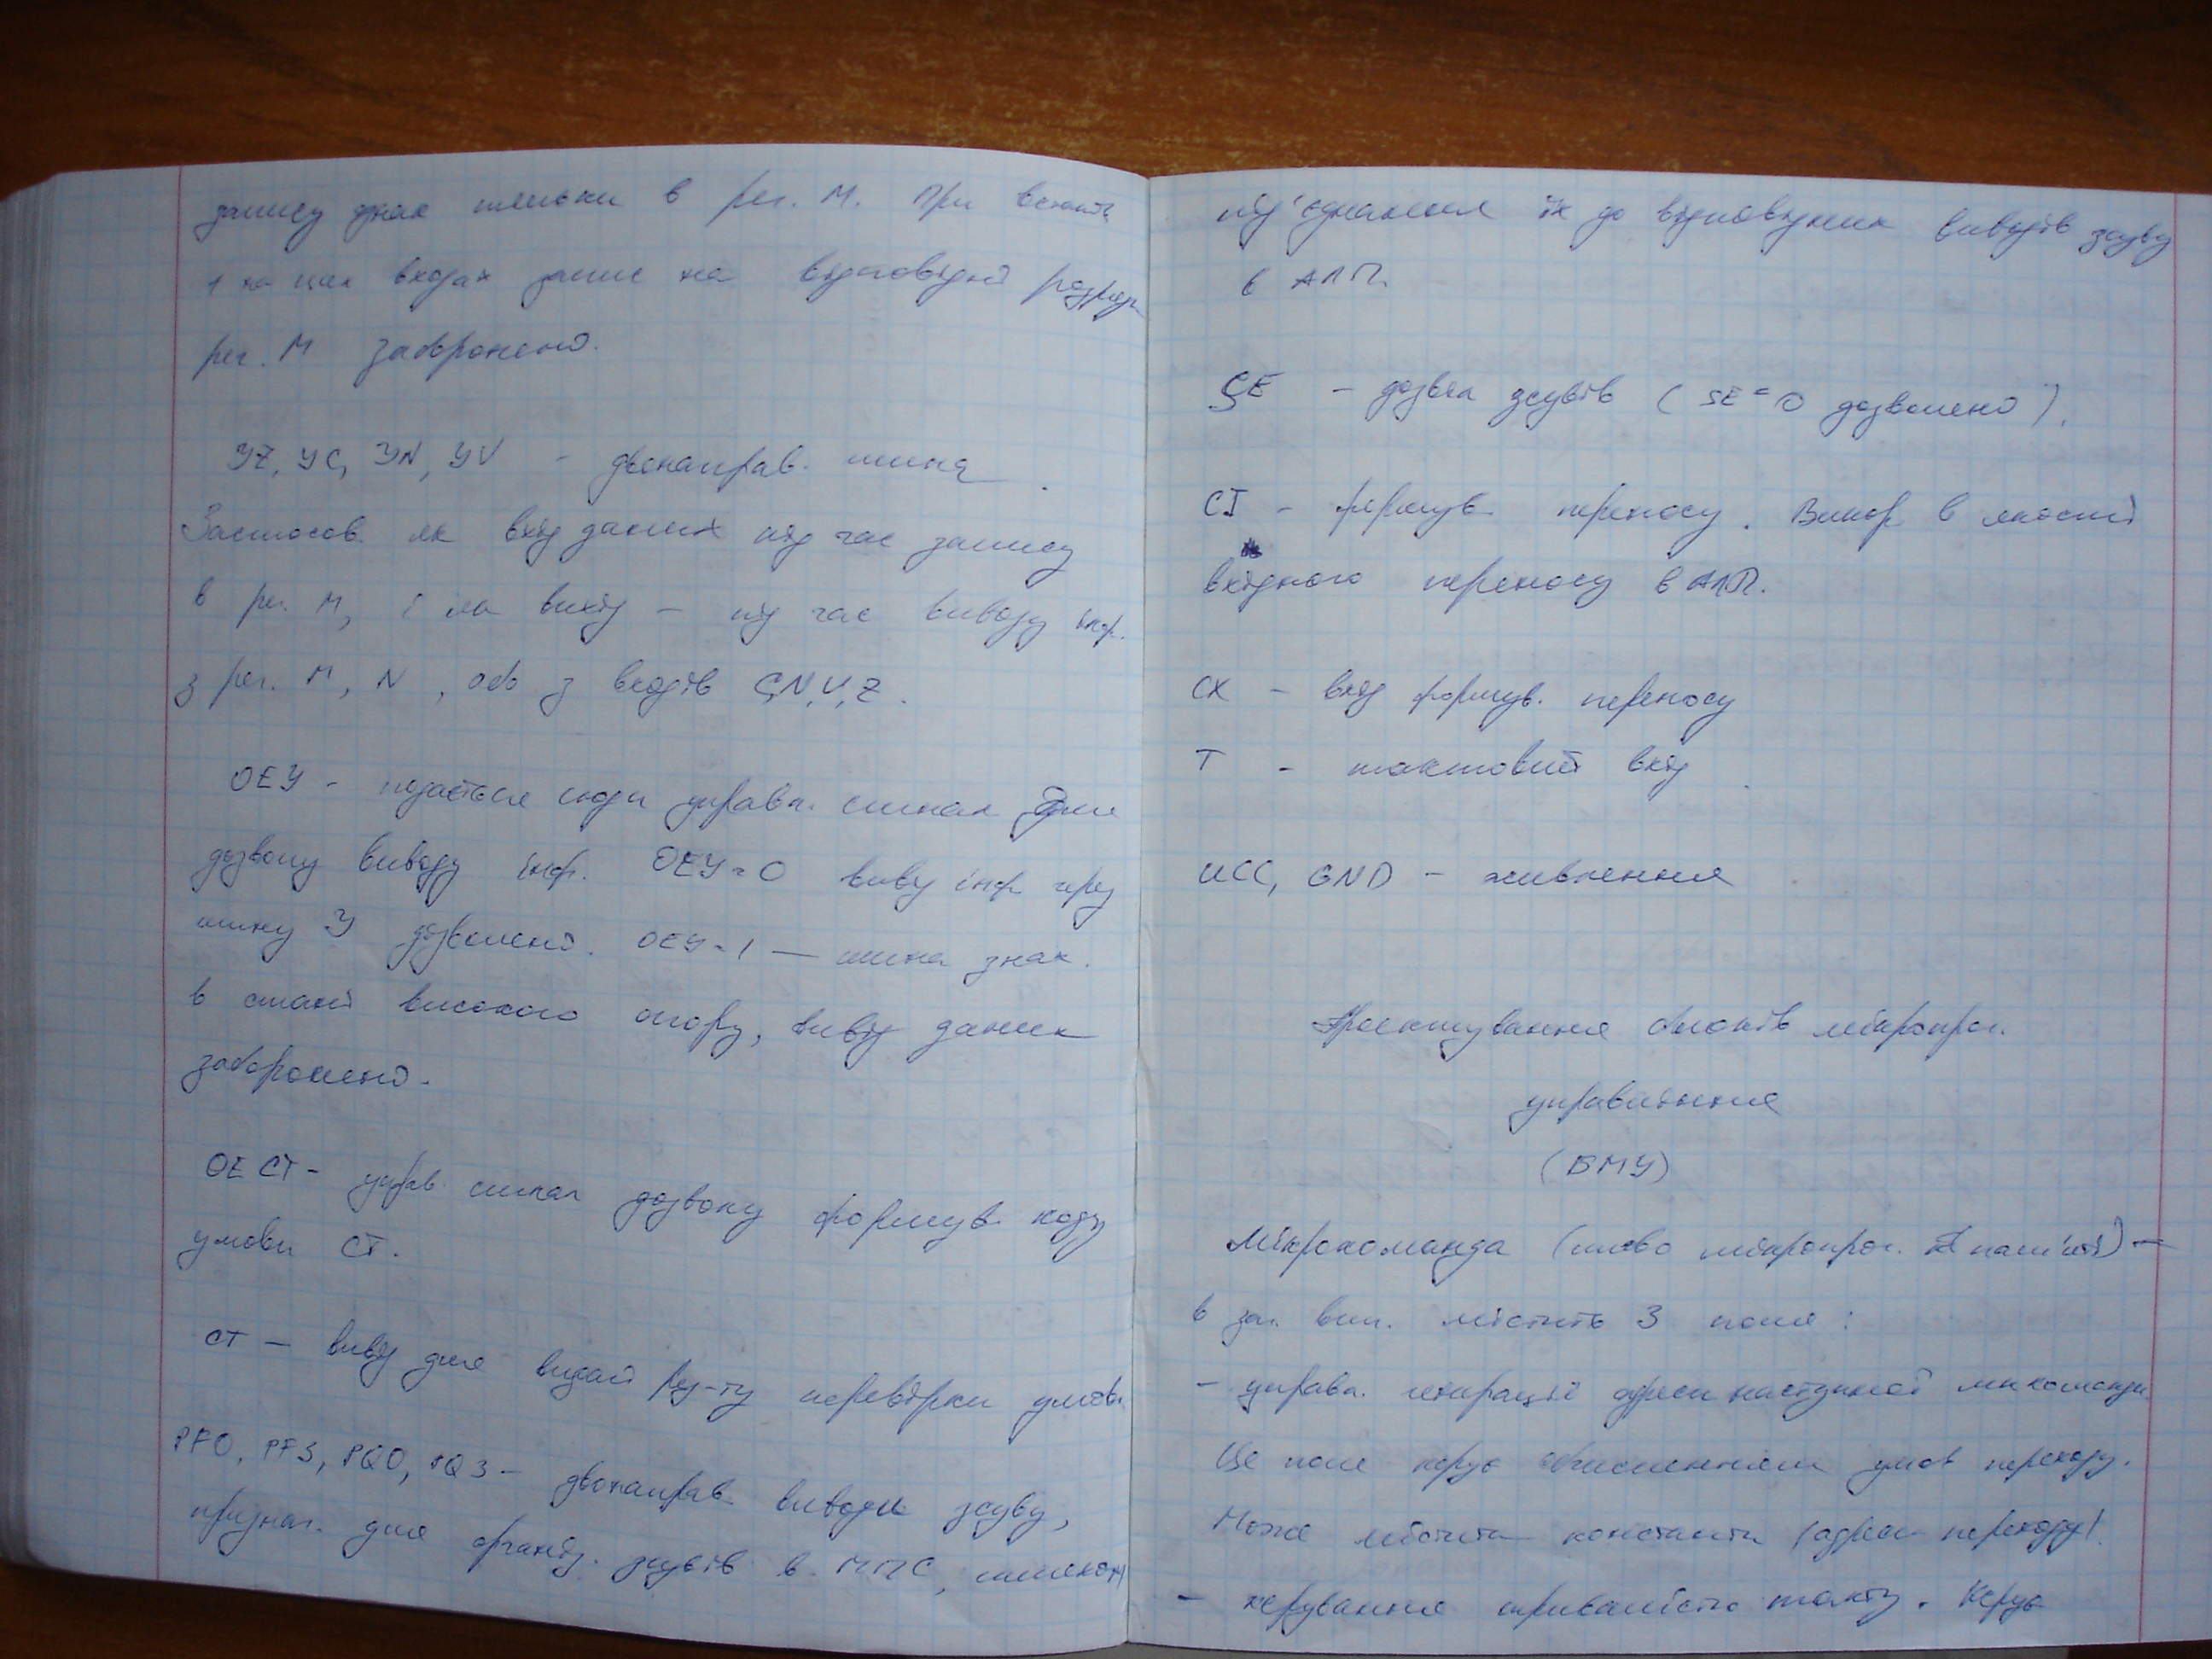 запису ознак тільки в рег. М. При встановл.
1 на цих входах запис на відповідні розряди
рег. М заборонено.
YZ, YC, YN, YV - двонаправ. шина.
Застосов. як вхід даних під час запису
в рег. М, і як вихід - під час виводу інф.
з рег. М, N, або з входів C,N,V,Z.
OEY - подається сюди управл. сигнал для
дозволу виводу інф. OEY=0 вивід інф. через
шину Y дозволено. OEY=1 — шина знах.
в стані високого опору, вивід даних
заборонено.
OE CT - управ. сигнал дозволу формув. коду
умови CT.
CT — вивід для видачі рез-ту перевірки умов.
PF0, PF3, PQ0, PQ3 - двонаправ. виводи зсуву,
признач. для організ. зсувів в МПС, шляхом
під'єднання їх до відповідних виводів зсуву
в АЛП.
SE - дозвіл зсувів (SE=0 дозволено).
CI - формув. переносу. Викор. в якості
вхідного переносу в АЛП.
CX - вхід формув. переносу
T - тактовий вхід
UCC, GND - живлення
Проектування блоків мікропрог.
управління
(БМУ)
Мікрокоманда (слово мікропрог. пам'яті) —
в заг. вип. містить 3 поля:
- управл. генерації адреси наступної міккоманди.
Це поле керує обчисленням умов переходу.
Може містити константи (адреси переходу).
- керування тривалістю такту. Керує